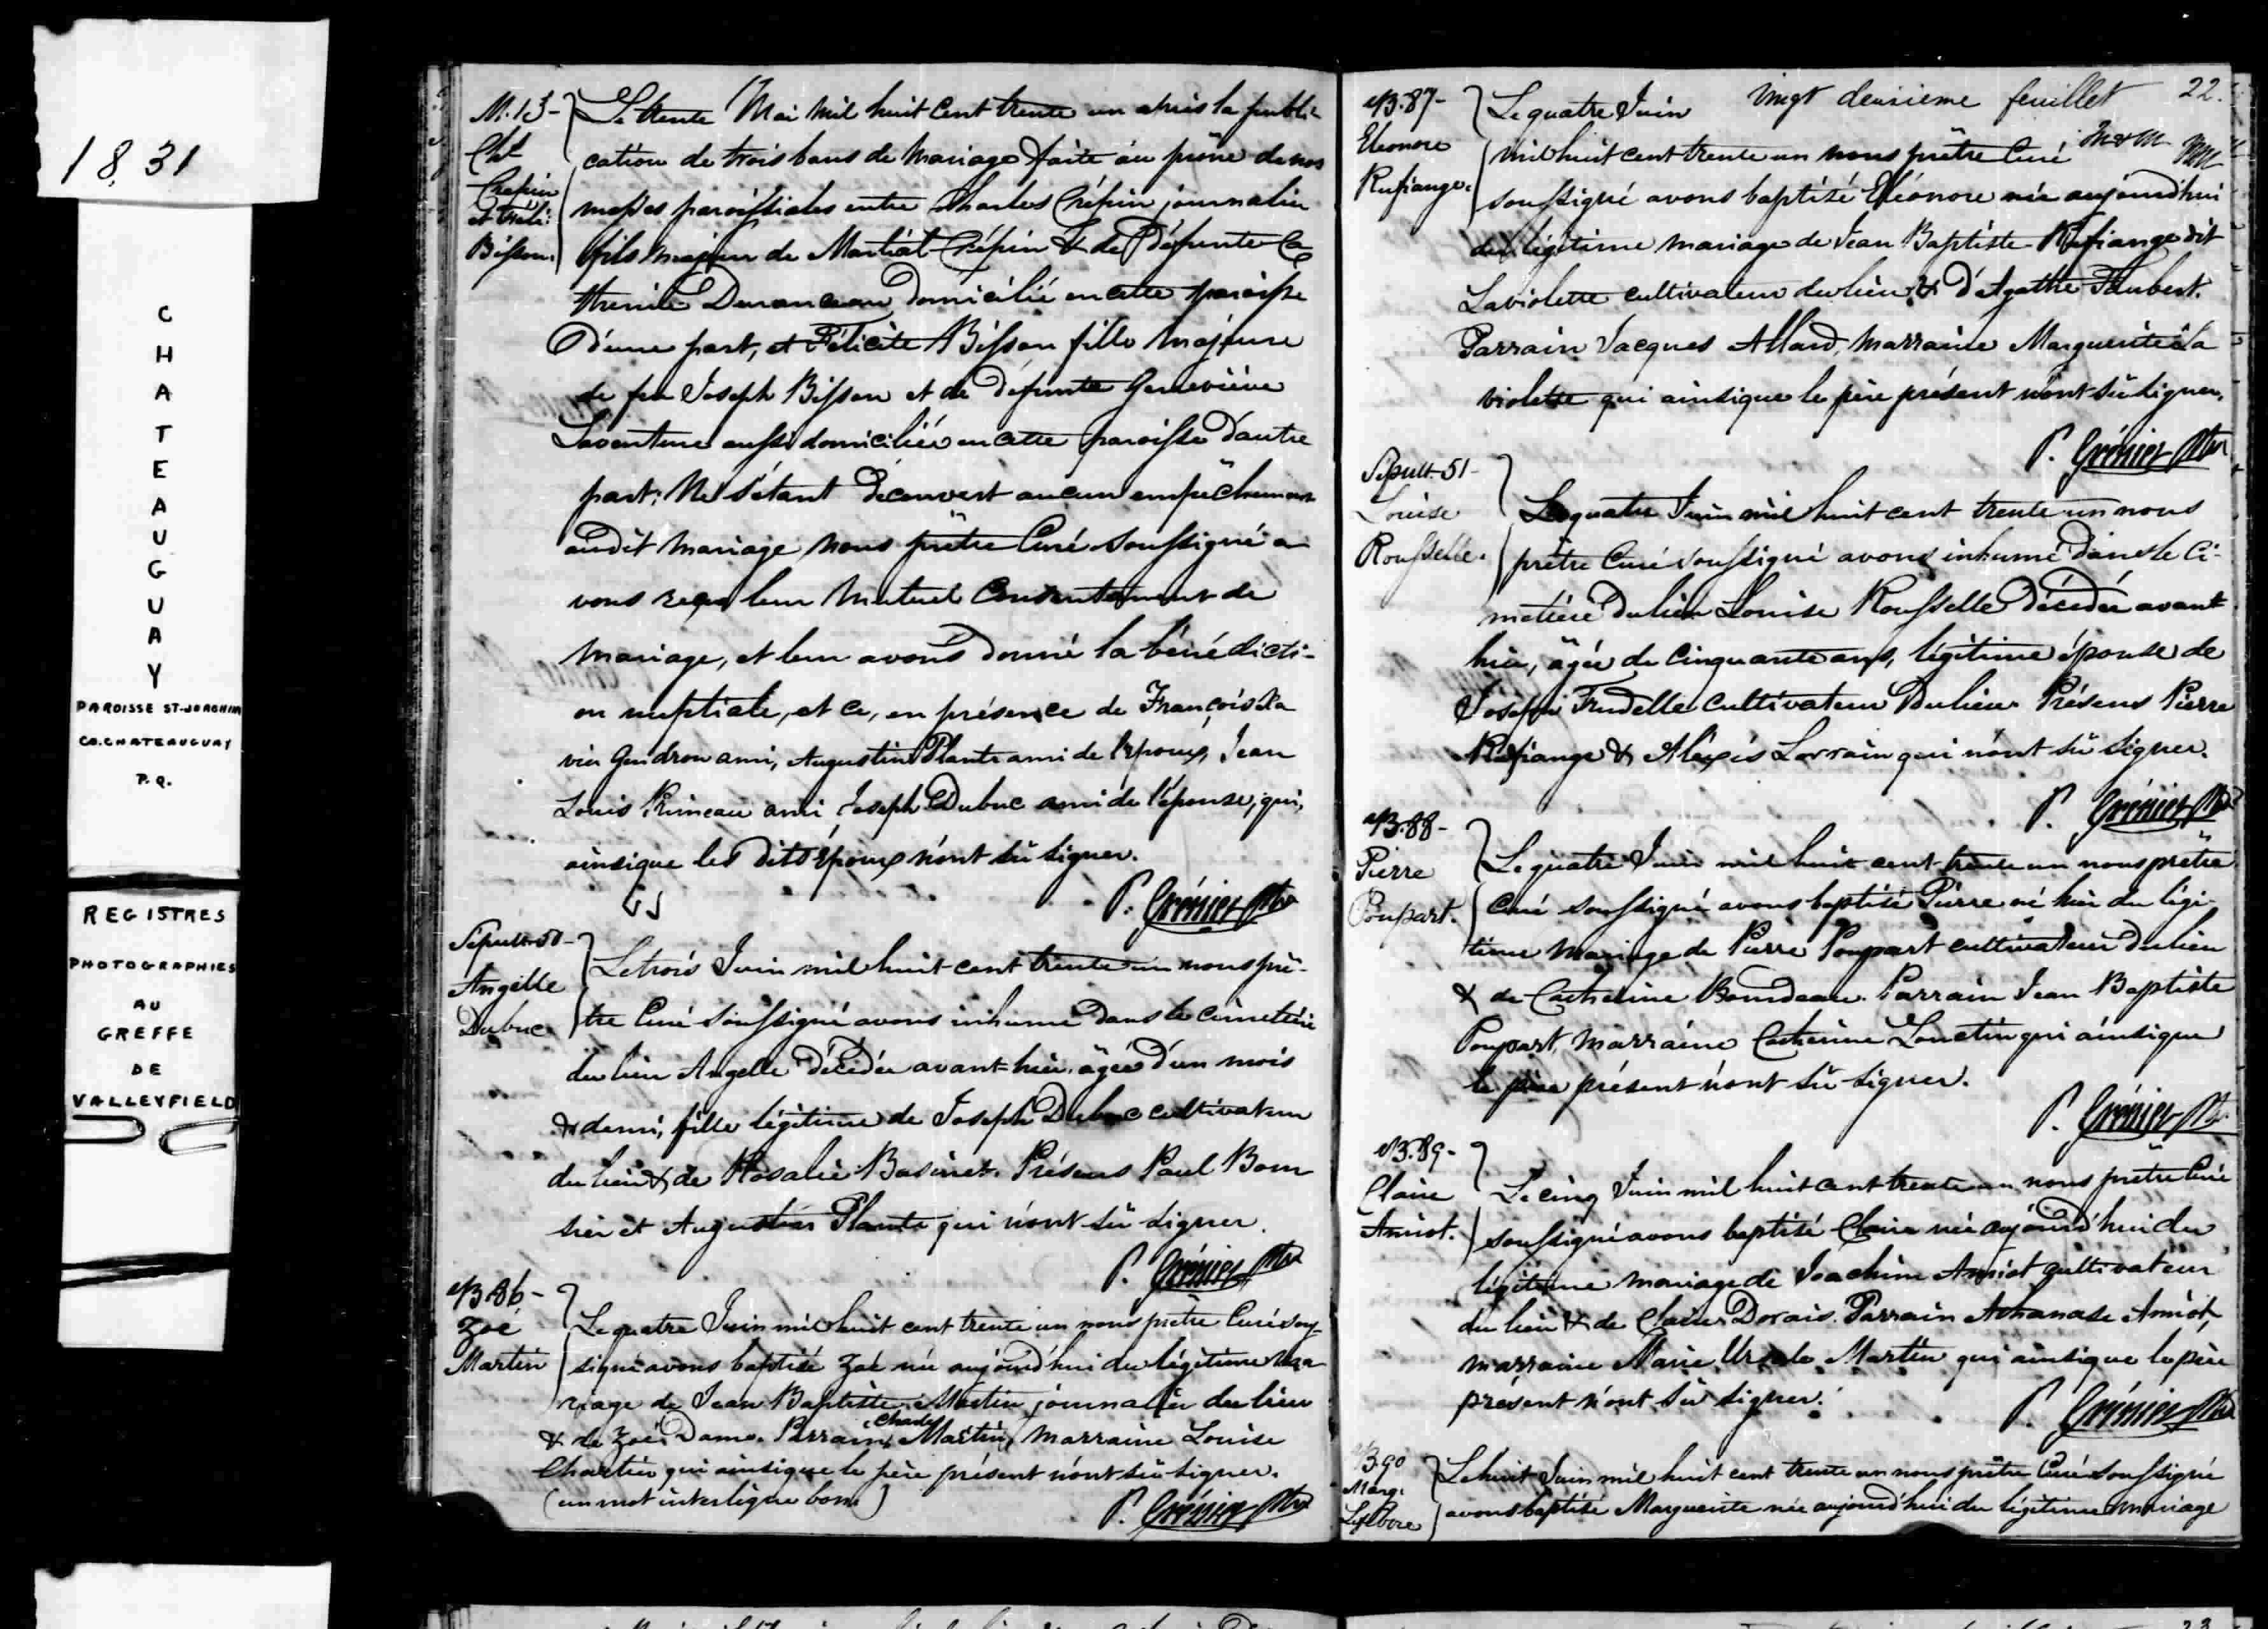 1831
CHATEAUGUAY
PAROISSE ST-JOACHIM
CO. CHATEAUGUAY
P.Q.
REGISTRES
PHOTOGRAPHIES
AU
GREFFE
DE
VALLEYFIELD
M. 13-
Chs
Crepin
et Féli:
Bisson.
Le trente Mai mil huit cent trente un après la publi-
cation de trois bans de mariage faite au prône de nos
messes paroissiales entre Charles Crépin journalier
fils majeur de Martial Crépin & de défunte Ca
therine Duranceau domicilié en cette paroisse
d'une part, et Félicité Bisson fille majeure
de feu Joseph Bisson et de défunte Geneviève
Laventure aussi domiciliée en cette paroisse d'autre
part; Ne s'étant découvert aucun empêchement
audit mariage nous prêtre Curé soussigné a
vons reçu leur mutuel Consentement de
mariage, et leur avons donné la bénédicti-
on nuptiale, et ce, en présence de François Xa
vier Gendron ami, Augustin Plante ami de l'époux, Jean
Louis Primeau ami Joseph Dubuc ami de l'épouse, qui,
ainsique les dits époux n'ont su signer.
P. Grénier Ptre
Sépult. 50-
Angelle
Dubuc
Le trois Juin mil huit cent trente un nous prê-
tre Curé soussigné avons inhumé dans le cimetière
du lieu Angelle décédée avant-hier âgée d'un mois
& demi, fille légitime de Joseph Dubuc cultivateur
du lieu & de Rosalie Basinet. Présens Paul Bour
sier et Augustin Plante qui n'ont su signer.
P. Grénier Ptre
B. 86-
Zoé
Martin
Le quatre Juin mil huit cent trente un nous prêtre Curé sous
signé avons baptisé Zoé née aujourd'hui du légitime ma
riage de Jean Baptiste Martin journalier du lieu
& de Zoé Dame. Parrain Charles Martin, marraine Louise
Chartier qui ainsique le père présent n'ont su signer.
(un mot interligne bon)
P. Grénier Ptre
vingt deuxieme feuillet 22.
B. 87-
Eleonore
Rufiange.
Le quatre Juin
mil huit cent trente un nous prêtre Curé
soussigné avons baptisé Eléonore née aujourd'hui
du légitime mariage de Jean Baptiste Rufiange dit
Laviolette cultivateur du lieu & d'Agathe Faubert.
Parrain Jacques Allard, marraine Marguerite La
violette qui ainsique le père présent n'ont su signer.
P. Grénier Ptre
Sépult. 51-
Louise
Rousselle.
Le quatre Juin mil huit cent trente un nous
prêtre Curé soussigné avons inhumé dans le ci-
metière du lieu Louise Rousselle décédée avant
hier, âgée de cinquante ans, légitime épouse de
Joseph Trudelle cultivateur du lieu. Présens Pierre
Rufiange & Alexis Lorrain qui n'ont su signer.
P. Grénier Ptre
B. 88-
Pierre
Poupart.
Le quatre Juin mil huit cent trente un nous prêtre
Curé soussigné avons baptisé Pierre né hier du légi-
time mariage de Pierre Poupart cultivateur du lieu
& de Catherine Bourdeau. Parrain Jean Baptiste
Poupart, marraine Catherine Lonctin qui ainsique
le père présent n'ont su signer.
P. Grénier Ptre
B. 89-
Claire
Amiot.
Le cinq Juin mil huit cent trente un nous prêtre Curé
soussigné avons baptisé Claire née aujourd'hui du
légitime mariage de Joachim Amiot cultivateur
du lieu & de Claire Dorais. Parrain Athanase Amiot,
marraine Marie Ursule Martin qui ainsique le père
présent n'ont su signer.
P. Grénier Ptre
B. 90
Marg.
Lefebvre
Le huit Juin mil huit cent trente un nous prêtre Curé soussigné
avons baptisé Marguerite née aujourd'hui du légitime mariage
23